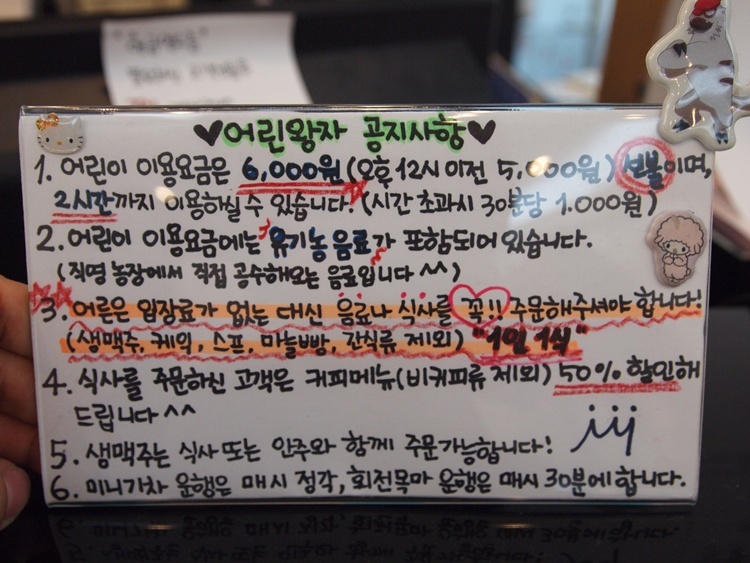 ♥어린왕자 공지사항♥
1. 어린이 이용요금은 6,000원(오후 12시 이전 5,000원) 선불이며,
2시간까지 이용하실 수 있습니다. (시간 초과시 30분당 1.000원)
2. 어린이 이용요금에는 유기농음료가 포함되어 있습니다.
(직영 농장에서 직접 공수해오는 음료입니다 ^^)
3. 어른은 입장료가 없는 대신 음료나 식사를 꼭!! 주문해주셔야 합니다!
(생맥주, 케익, 스프, 마늘빵, 간식류 제외) "1인 1식"
4. 식사를 주문하신 고객은 커피메뉴(비커피류 제외) 50% 할인해
드립니다^^
5. 생맥주는 식사 또는 안주와 함께 주문가능합니다!
6. 미니기차 운행은 매시 정각, 회전목마 운행은 매시 30분에 합니다.